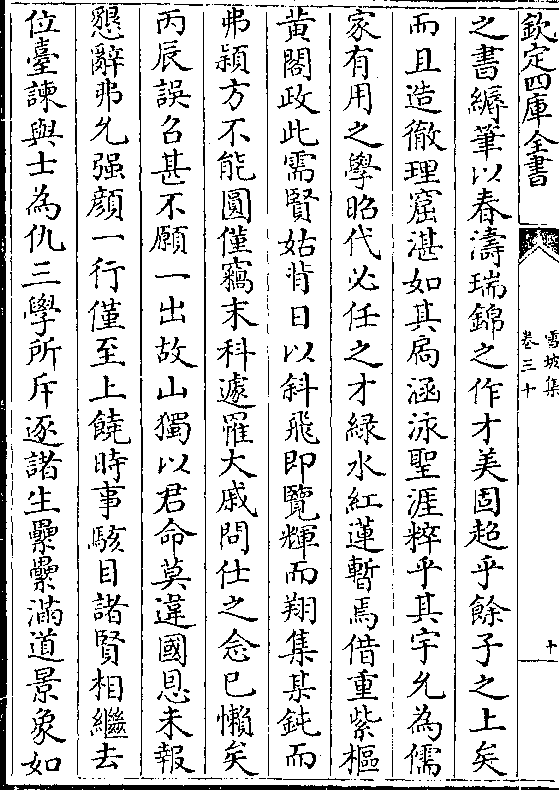 欽定四庫全書
雪坡集
卷三十
十
之書縟筆以春濤瑞錦之作才美固超乎餘子之上矣
而且造徹理窟湛如其扃涵泳聖涯粹乎其宇允為儒
家有用之學昭代必任之才緑水紅蓮暫焉借重紫樞
黄閣政此需賢姑背日以斜飛即覽輝而翔集某鈍而
弗頴方不能圓僅竊末科遽罹大戚問仕之念已懶矣
丙辰誤召甚不願一出故山獨以君命莫違國恩未報
懇辭弗允强顔一行僅至上饒時事駭目諸賢相繼去
位臺諫與士為仇三學所斥逐諸生纍纍滿道景象如